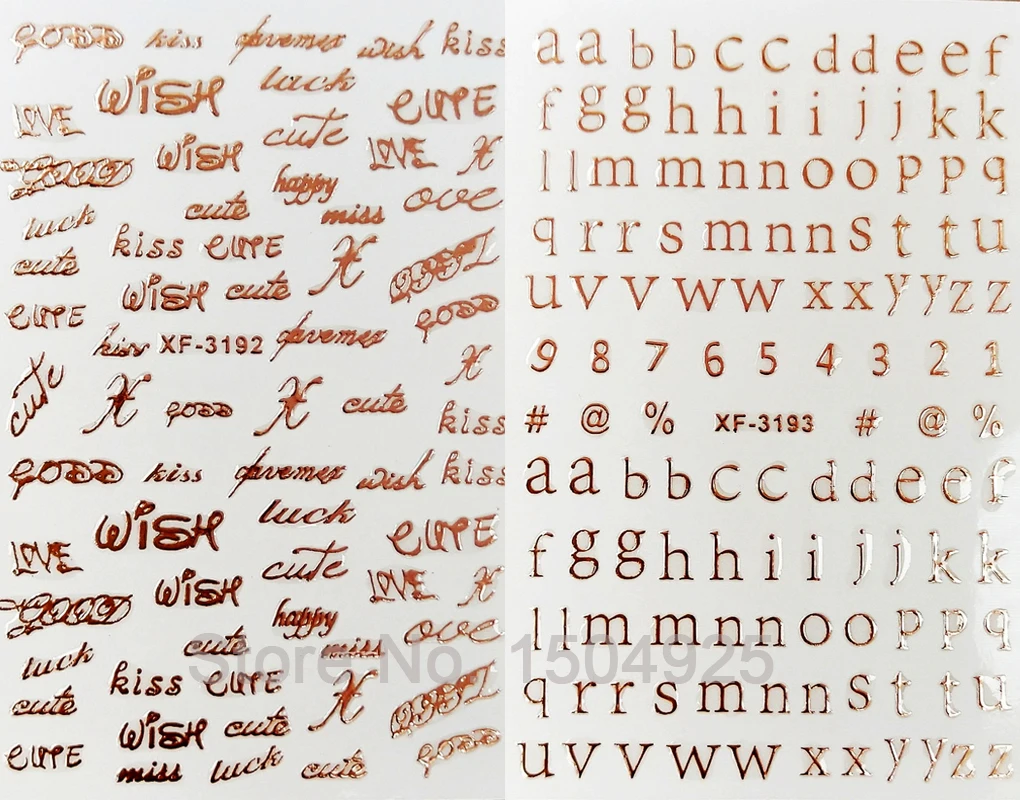 GOOD kiss davemex wish kiss
WISH luck
LOVE cute CUTE
GOOD WISH LOVE X
happy
luck cute miss ove
kiss CUTE X
cute
CUTE WISH cute GOOD
kiss XF-3192 davemex
X
cute X GOOD X cute
kiss
GOOD kiss davemex wish kiss
WISH luck
LOVE cute CUTE
GOOD WISH LOVE X
happy
luck cute miss ove
kiss CUTE X
cute
CUTE WISH cute GOOD
miss luck cute
a a b b c c d d e e f
f g g h h i i j j k k
l l m m n n o o p p q
q r r s m n n s t t u
u v v w w x x y y z z
9 8 7 6 5 4 3 2 1
# @ % XF-3193 # @ %
a a b b c c d d e e f
f g g h h i i j j k k
l l m m n n o o p p q
q r r s m n n s t t u
u v v w w x x y y z z
Store No. 1504925